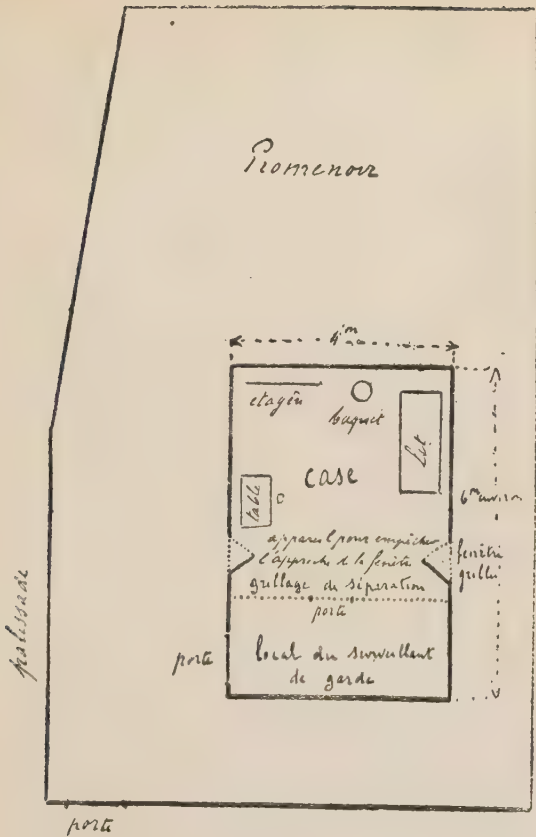 Promenoir
4m
etagère
baquet
Lit
case
table
6m environ
appareil pour empêcher
l'approche de la fenêtre
fenêtre
grillée
grillage de séparation
porte
palissade
porte
local du surveillant
de garde
porte